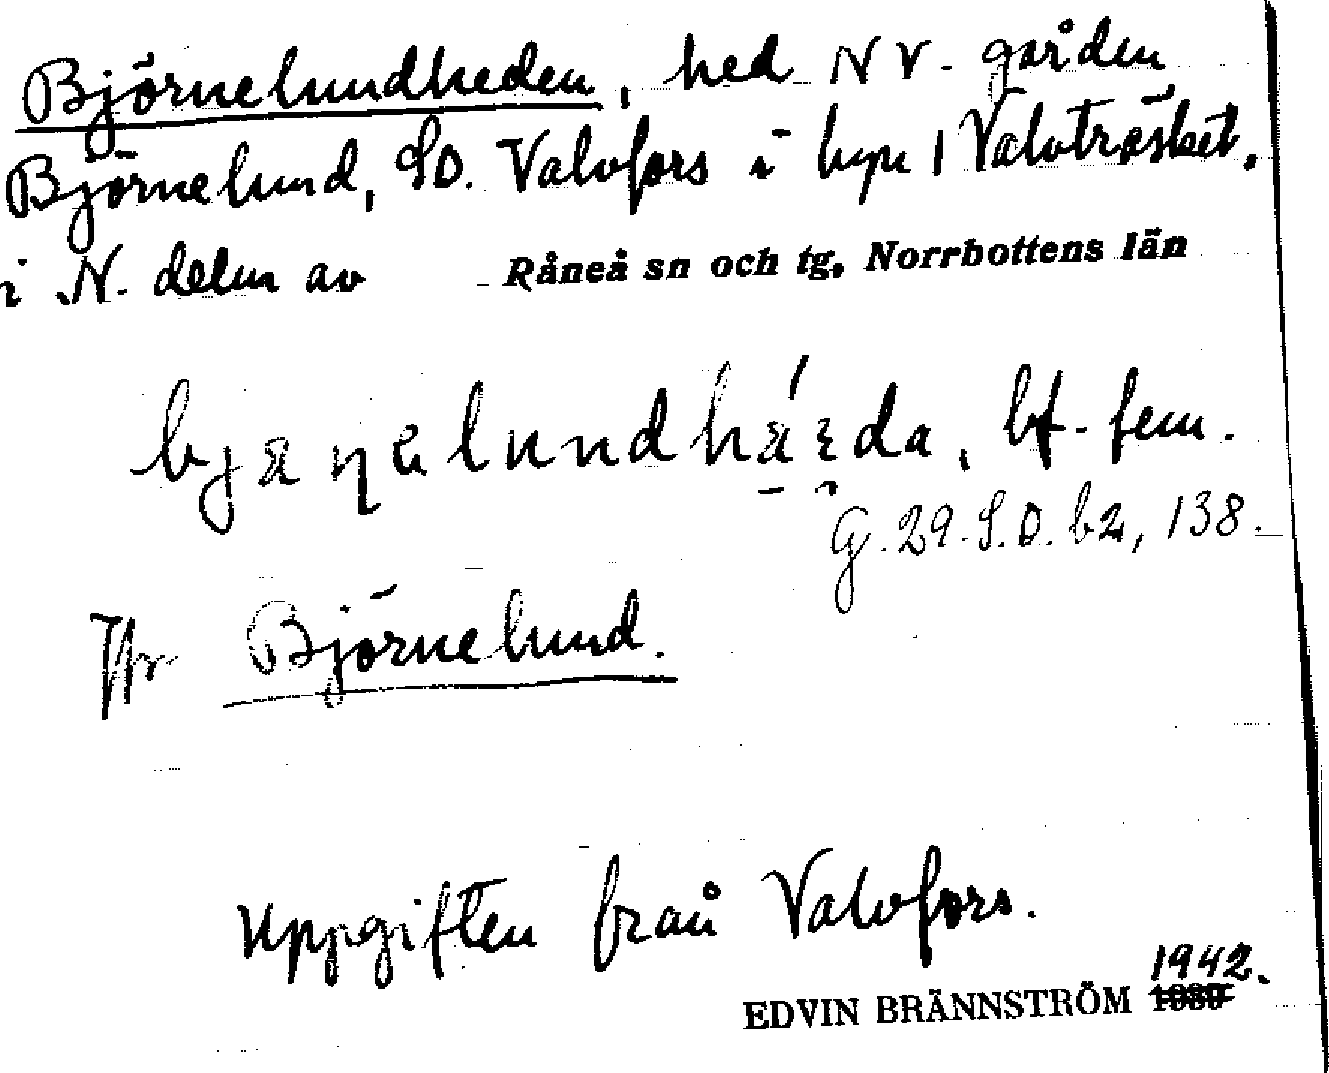 Björnelundheden, hed NV. gården
Björnelund, SO. Valvfors i byn Valvträsket,
i N. delen av Råneå sn och tg, Norrbottens län
bf. fem.
G. 29. S. D. b2, 138.
Björnelund.
Uppgiften från Valvfors.
1942.
EDVIN BRÄNNSTRÖM 1939